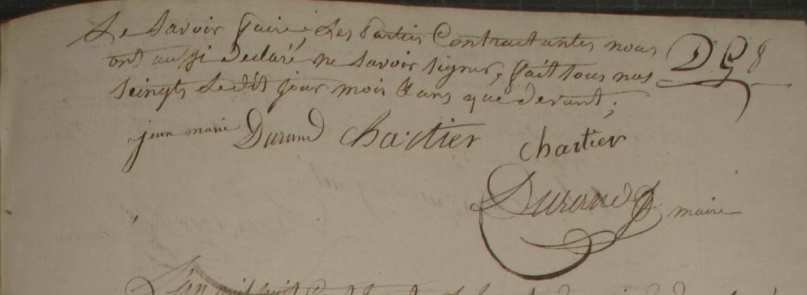 Le Savoir faire, Les Parties Contractantes nous
ont aussi Declaré ne Savoir signer, fait sous nos
Seings Le dit jour mois & ans que devant,
jean marie Durand Chartier chartier
Durand maire
L'an mil huit Cent